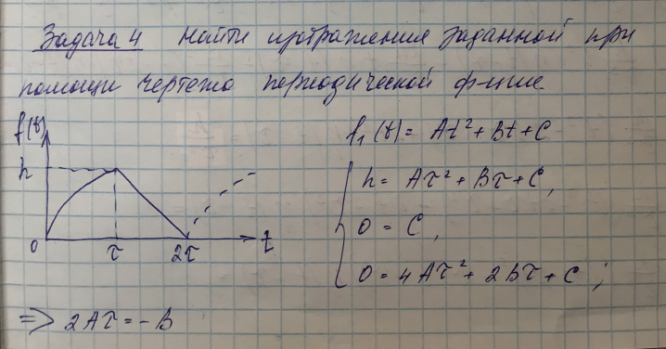 Задача 4 Найти изображение заданной при
помощи чертежа периодической ф-ции.
f(t)
h
0 τ 2τ t
f₁(t) = At² + Bt + C
h = Aτ² + Bτ + C,
0 = C,
0 = 4Aτ² + 2Bτ + C;
=> 2Aτ = -B